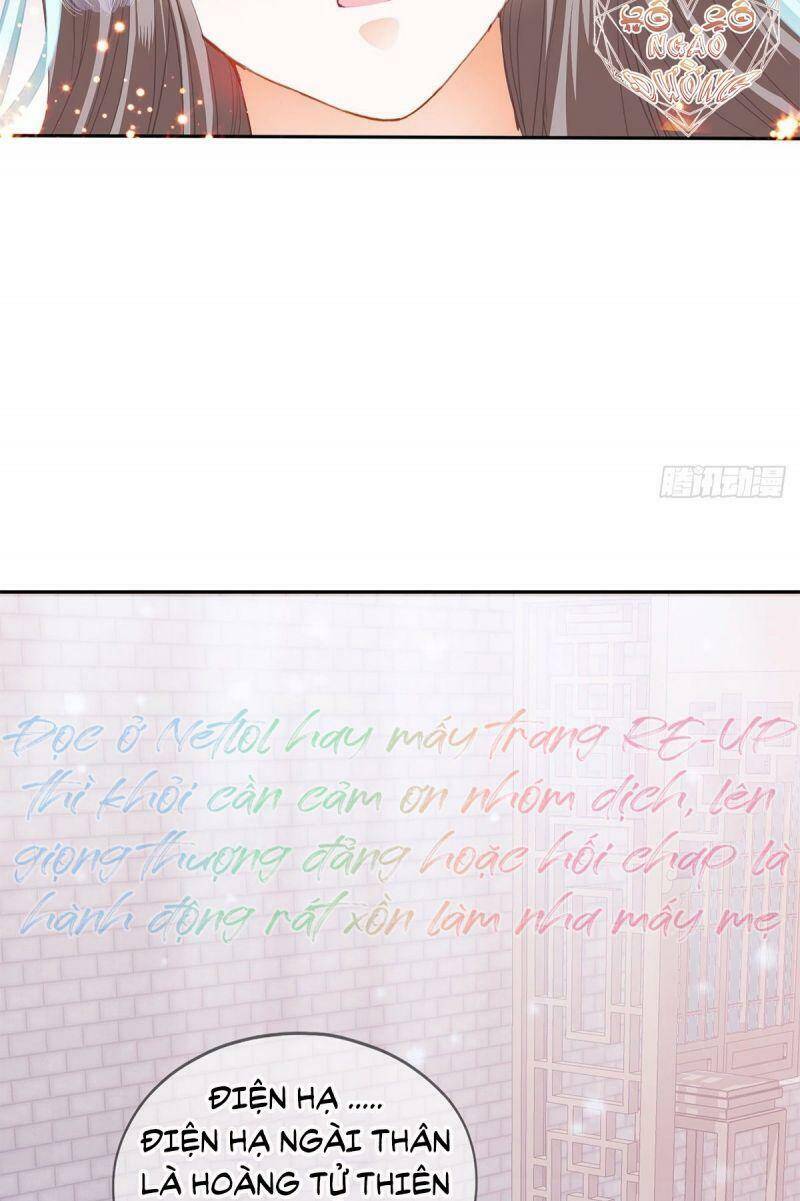 HỐ HỐ
NGÀO
ĐƯỜNG
腾讯动漫
Đọc ở Netlol hay mấy trang RE-UP
thì khỏi cần cảm ơn nhóm dịch, lên
giọng thượng đẳng hoặc hối chap là
hành động rất xồn làm nha mấy mẹ
ĐIỆN HẠ .....
ĐIỆN HẠ NGÀI THÂN
LÀ HOÀNG TỬ THIÊN